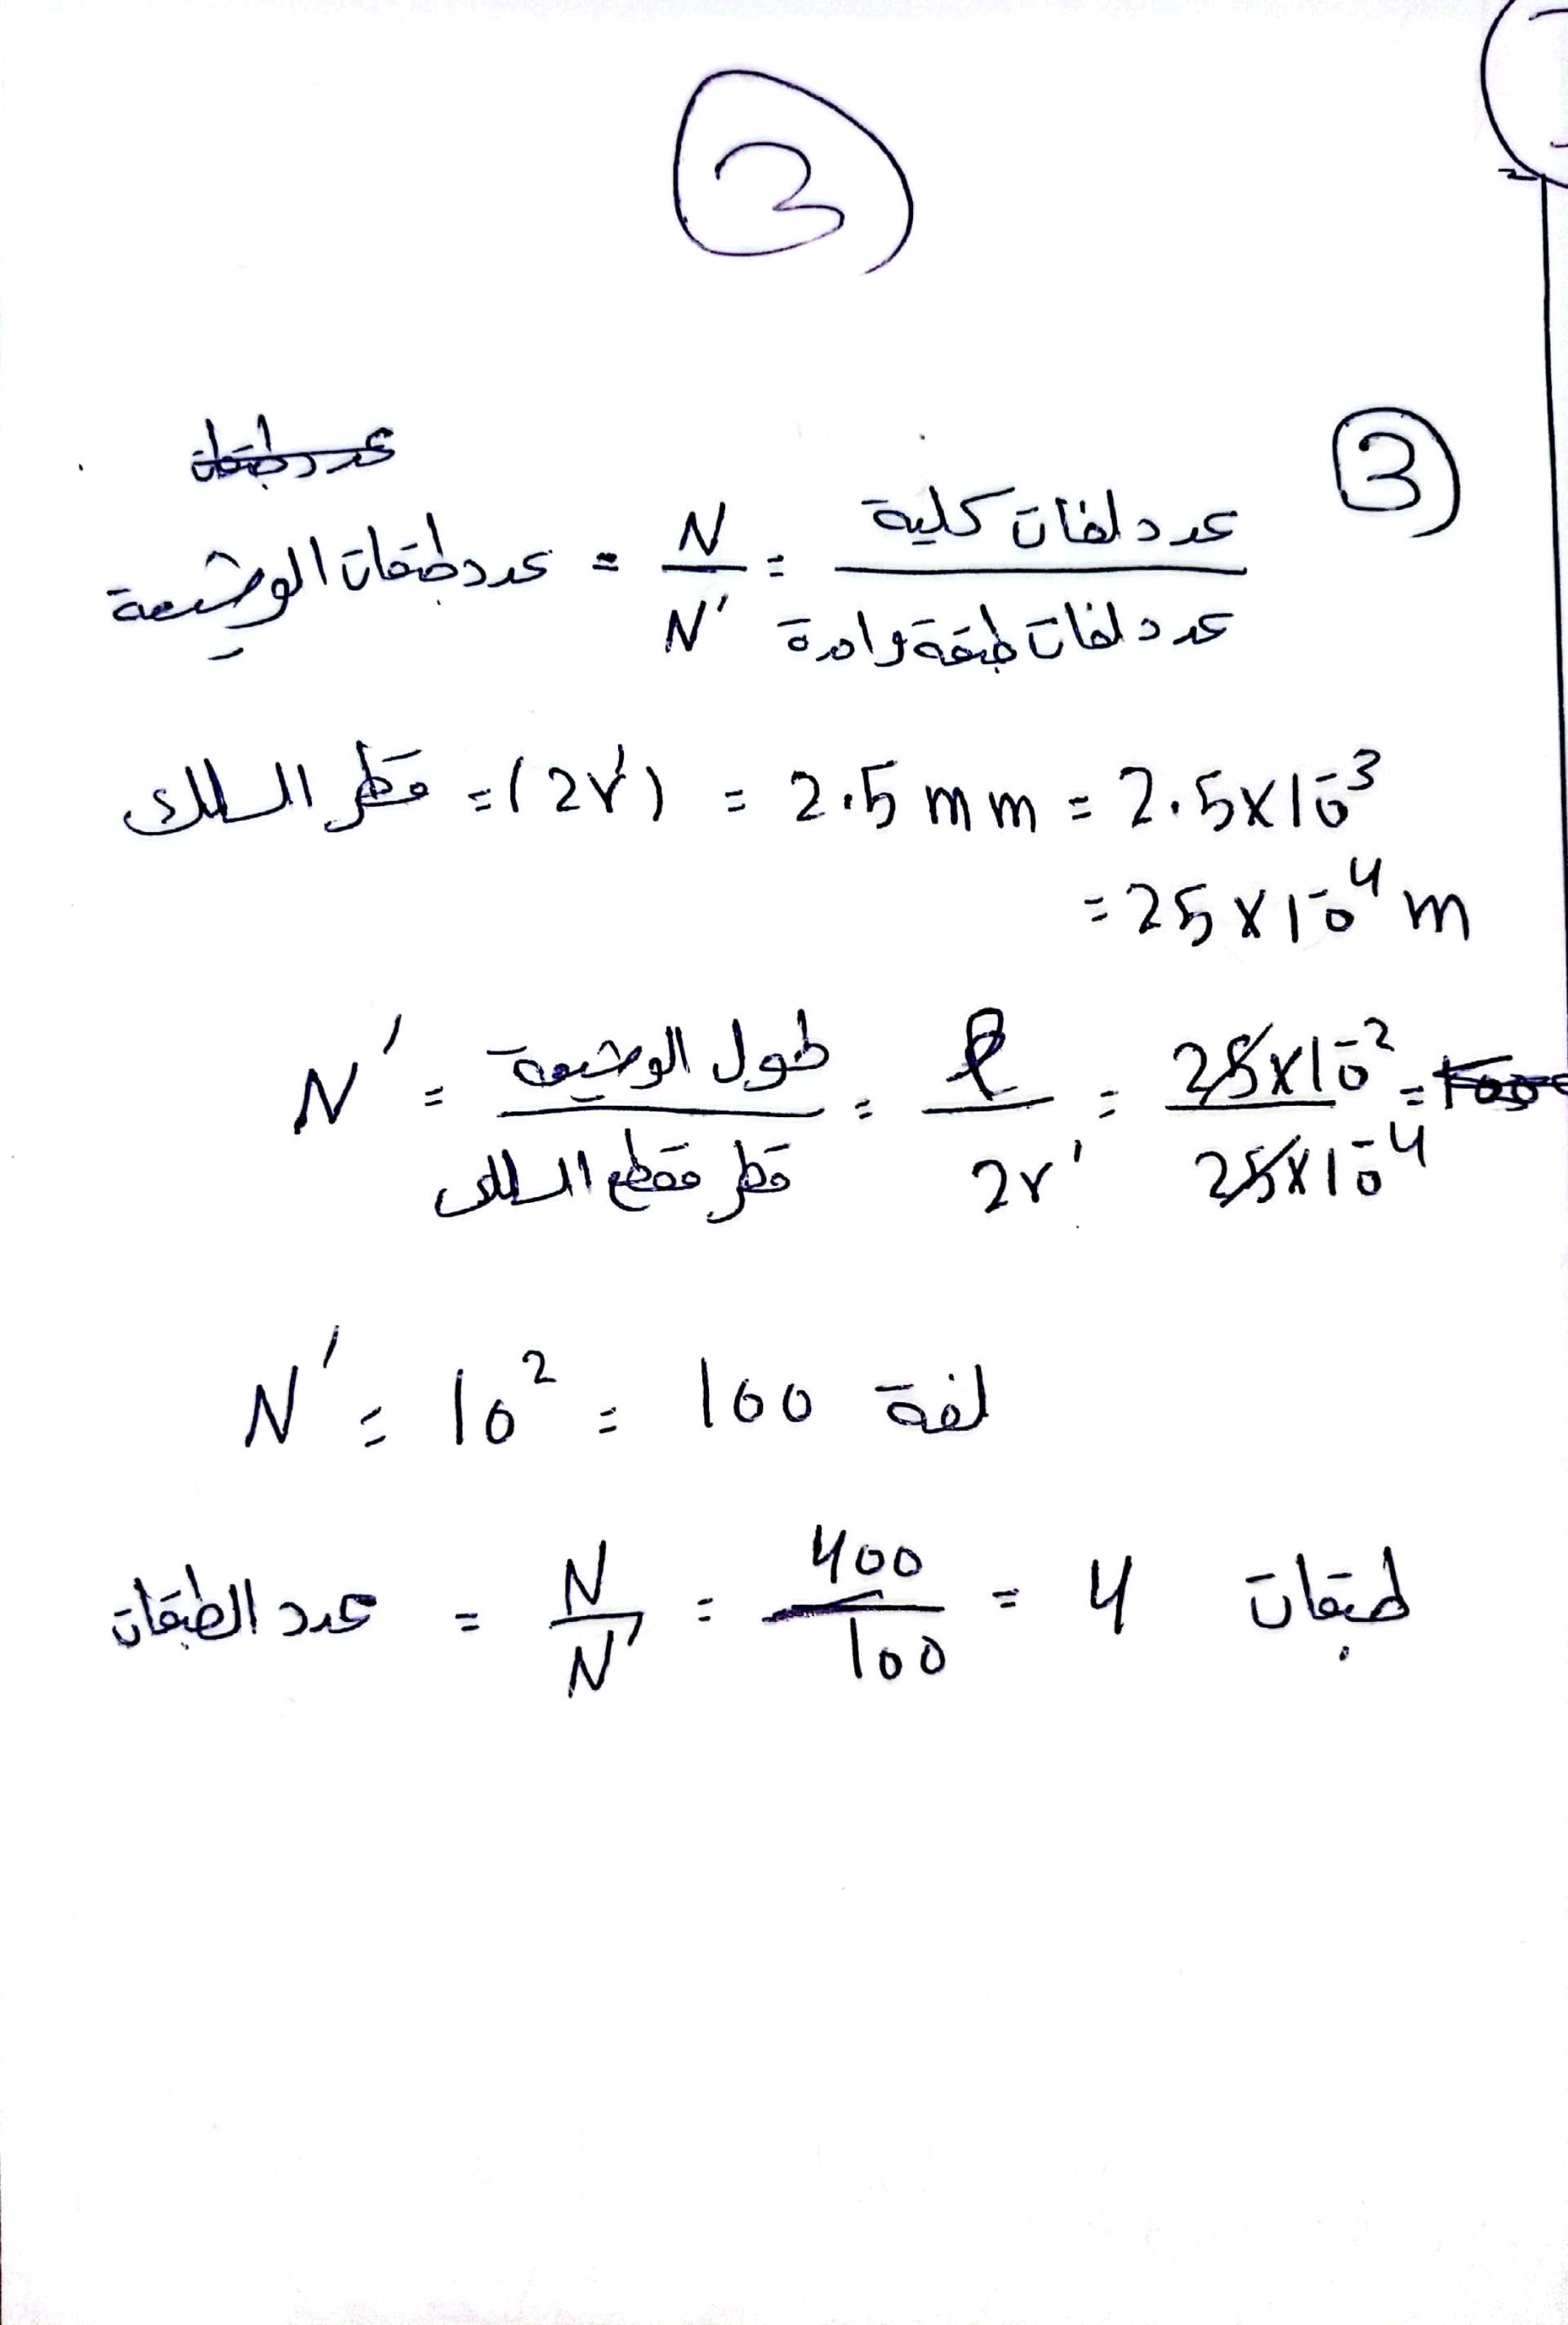 3
3
عدد طبقات
عدد طبقات الوشيعة = N/N' = عدد لفات كلية / عدد لفات طبقة واحدة
قطر السلك = (2r') = 2.5 mm = 2.5×10⁻³
= 25×10⁻⁴ m
N' = طول الوشيعة / قطر مقطع السلك = ℓ/2r' = 25×10⁻² / 25×10⁻⁴ =
N' = 10² = 100 لفة
عدد الطبقات = N/N' = 400/100 = 4 طبقات